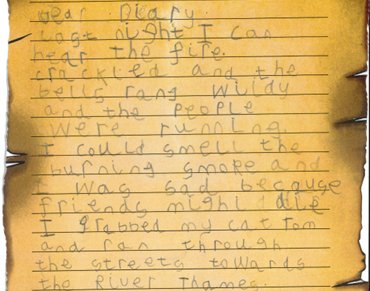 Dear Diary
Last night I can
hear the fire.
crackled and the
bells rang wildy
and the People
were running.
I could smell the
burning smoke and
I was sad because
friends might die
I grabbed my cat Tom
and ran through
the streets towards
the River Thames.